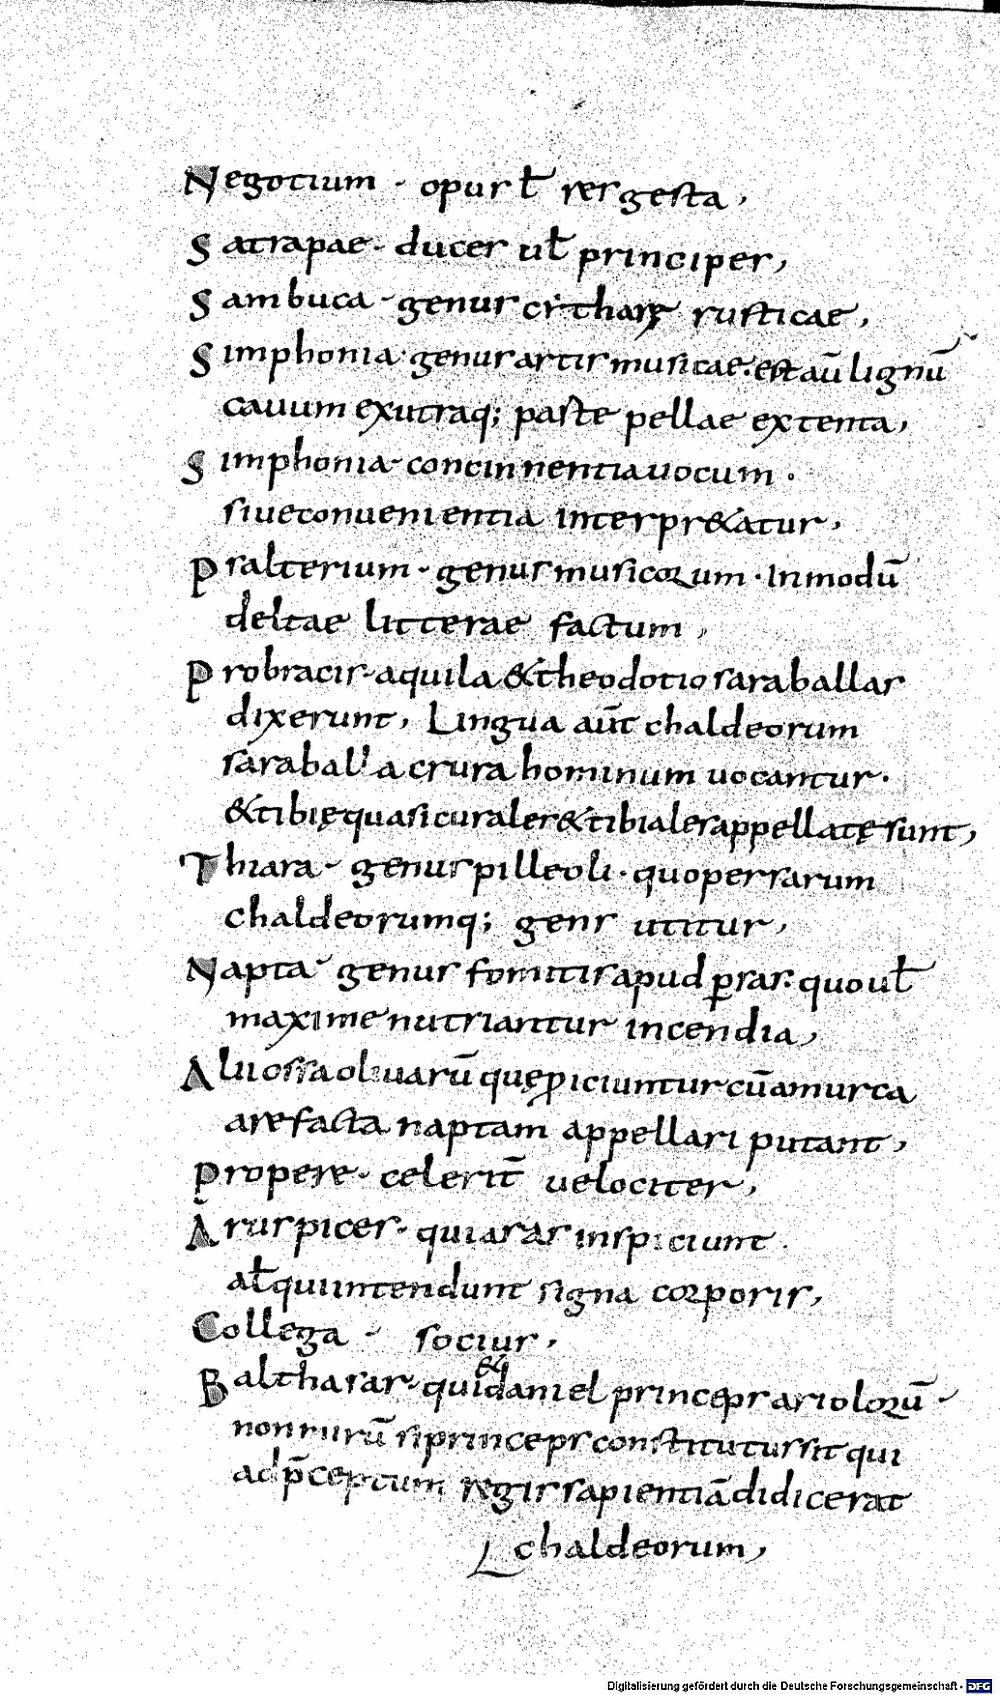 Negotium · opus ł res gesta,
Satrapae · duces uł principes,
Sambuca · genus cytharę rusticae,
Simphonia · genus artis musicae. est aū lignū
cauum ex utraq; paste pellae extenta,
Simphonia · concinnentia uocum ·
siue conuenientia interpr&atur,
Psalterium · genus musicorum · In modū
deltae litterae factum,
Probracis · aquila & theodotio saraballas
dixerunt, Lingua aūt chaldeorum
saraballa crura hominum uocantur ·
& tibię quasi curales & tibiales appellatę sunt,
Thiara · genus pilleoli · quo persarum
chaldeorumq; gens utitur,
Napta · genus fomitis apud p̱sas · quo uł
maxime nutriantur incendia,
Alii ossa oliuarū quę ꝓiciuntur cū amurca
arefacta naptam appellari putant,
Propere · celerit̄ uelociter,
Aruspices · qui asas inspiciunt ·
ał qui intendunt signa corporis,
Collega · socius,
&
Balthasar · qui daniel princeps ariolorū ·
non mirū si princeps constitutus sit qui
ad p̄ceptum regis sapientiā didicerat
chaldeorum,
Digitalisierung gefördert durch die Deutsche Forschungsgemeinschaft - DFG